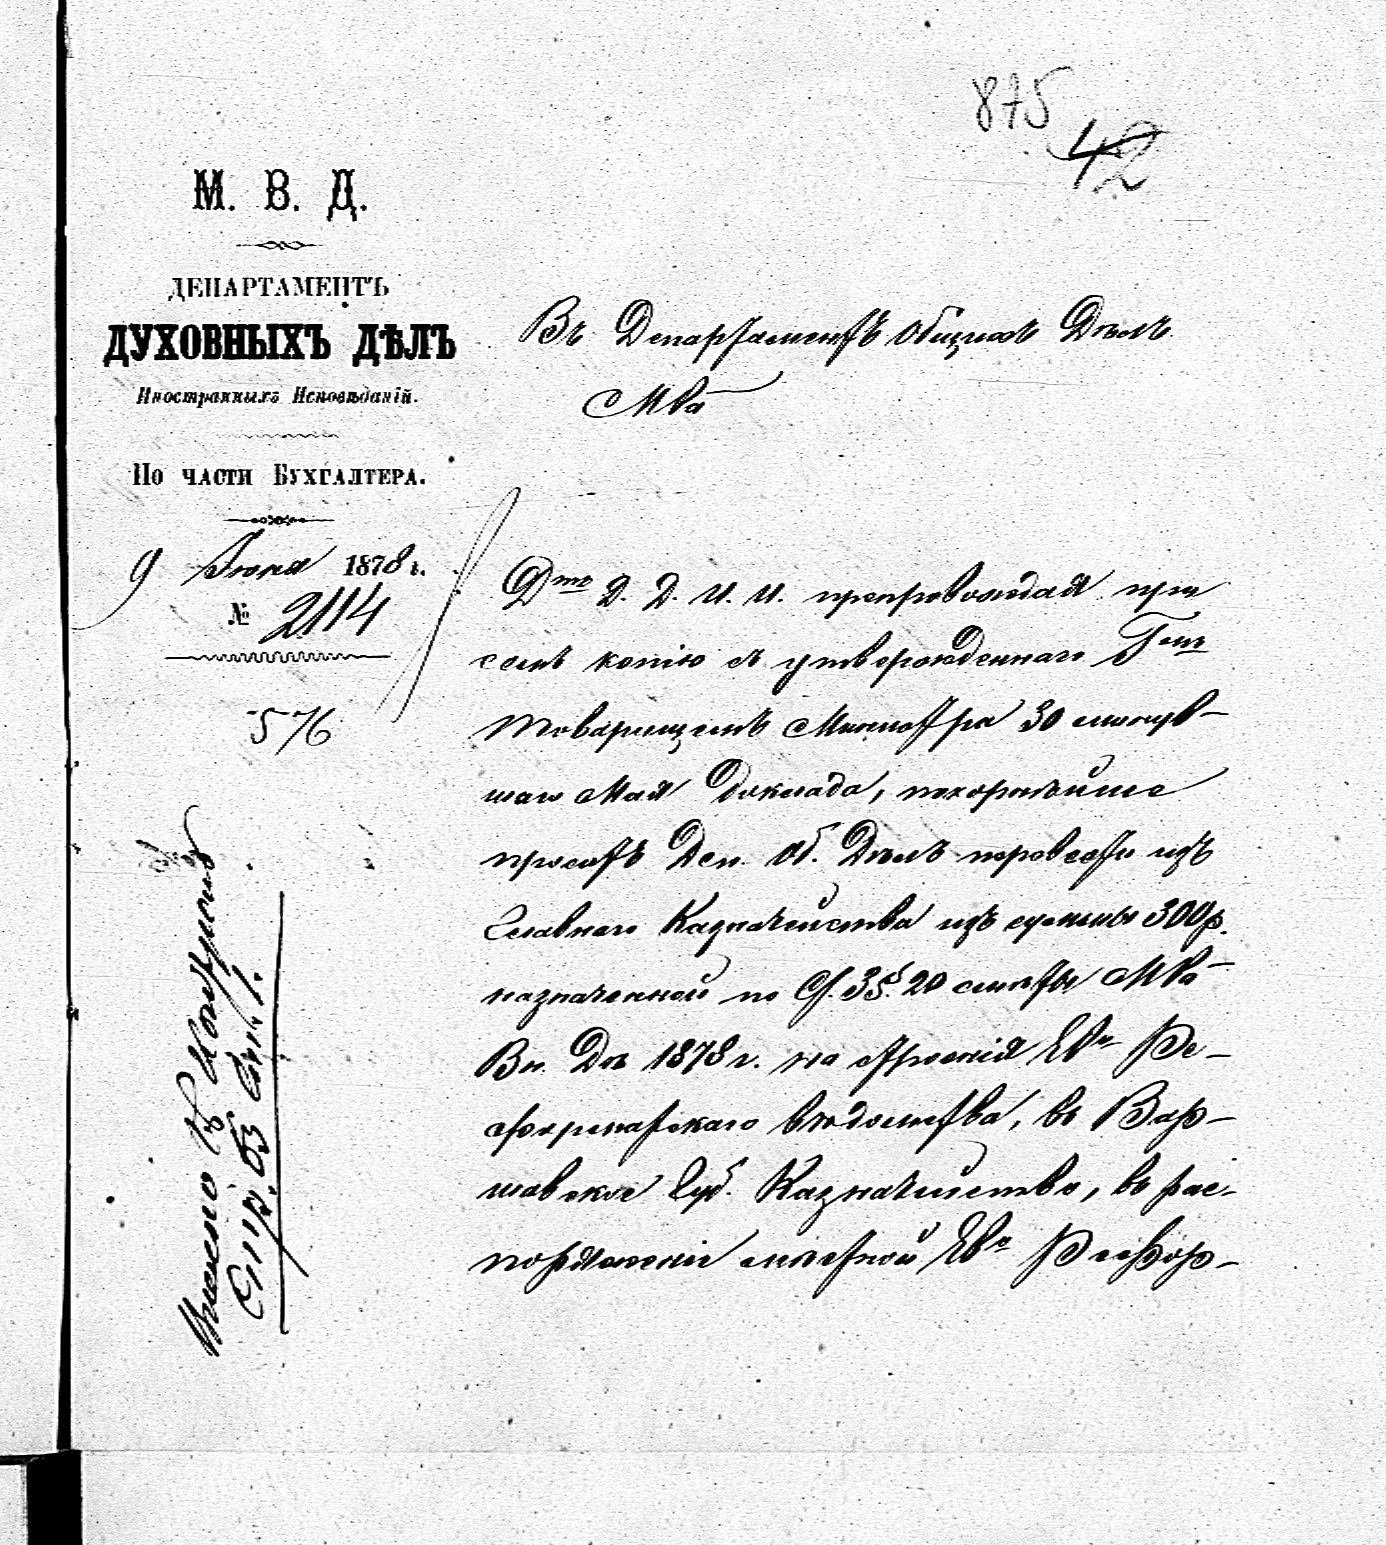 875
42
М. В. Д.
ДЕПАРТАМЕНТЪ
ДУХОВНЫХЪ ДѢЛЪ
Иностранныхъ Исповѣданій.
По части Бухгалтера.
9 Іюня 1878 г.
№ 2114
576
Въ Департаментъ Общихъ Дѣлъ
М-ва
Д-тъ Д. Д. И. И. препровождая при
семъ копію съ утвержденнаго Г-мъ
Товарищемъ Министра 30 минув-
шаго Мая доклада, покорнѣйше
проситъ Деп. Об. Дѣлъ перевести изъ
Главнаго Казначейства изъ суммы 300 р.
назначенной по ст. 3 § 20 смѣты М-ва
Вн. Дѣлъ 1878 г. на строенія Ев. Ре-
форматскаго вѣдомства, въ Вар-
шавское Губ. Казначейство, въ рас-
поряженіе мѣстной Ев. Рефор-